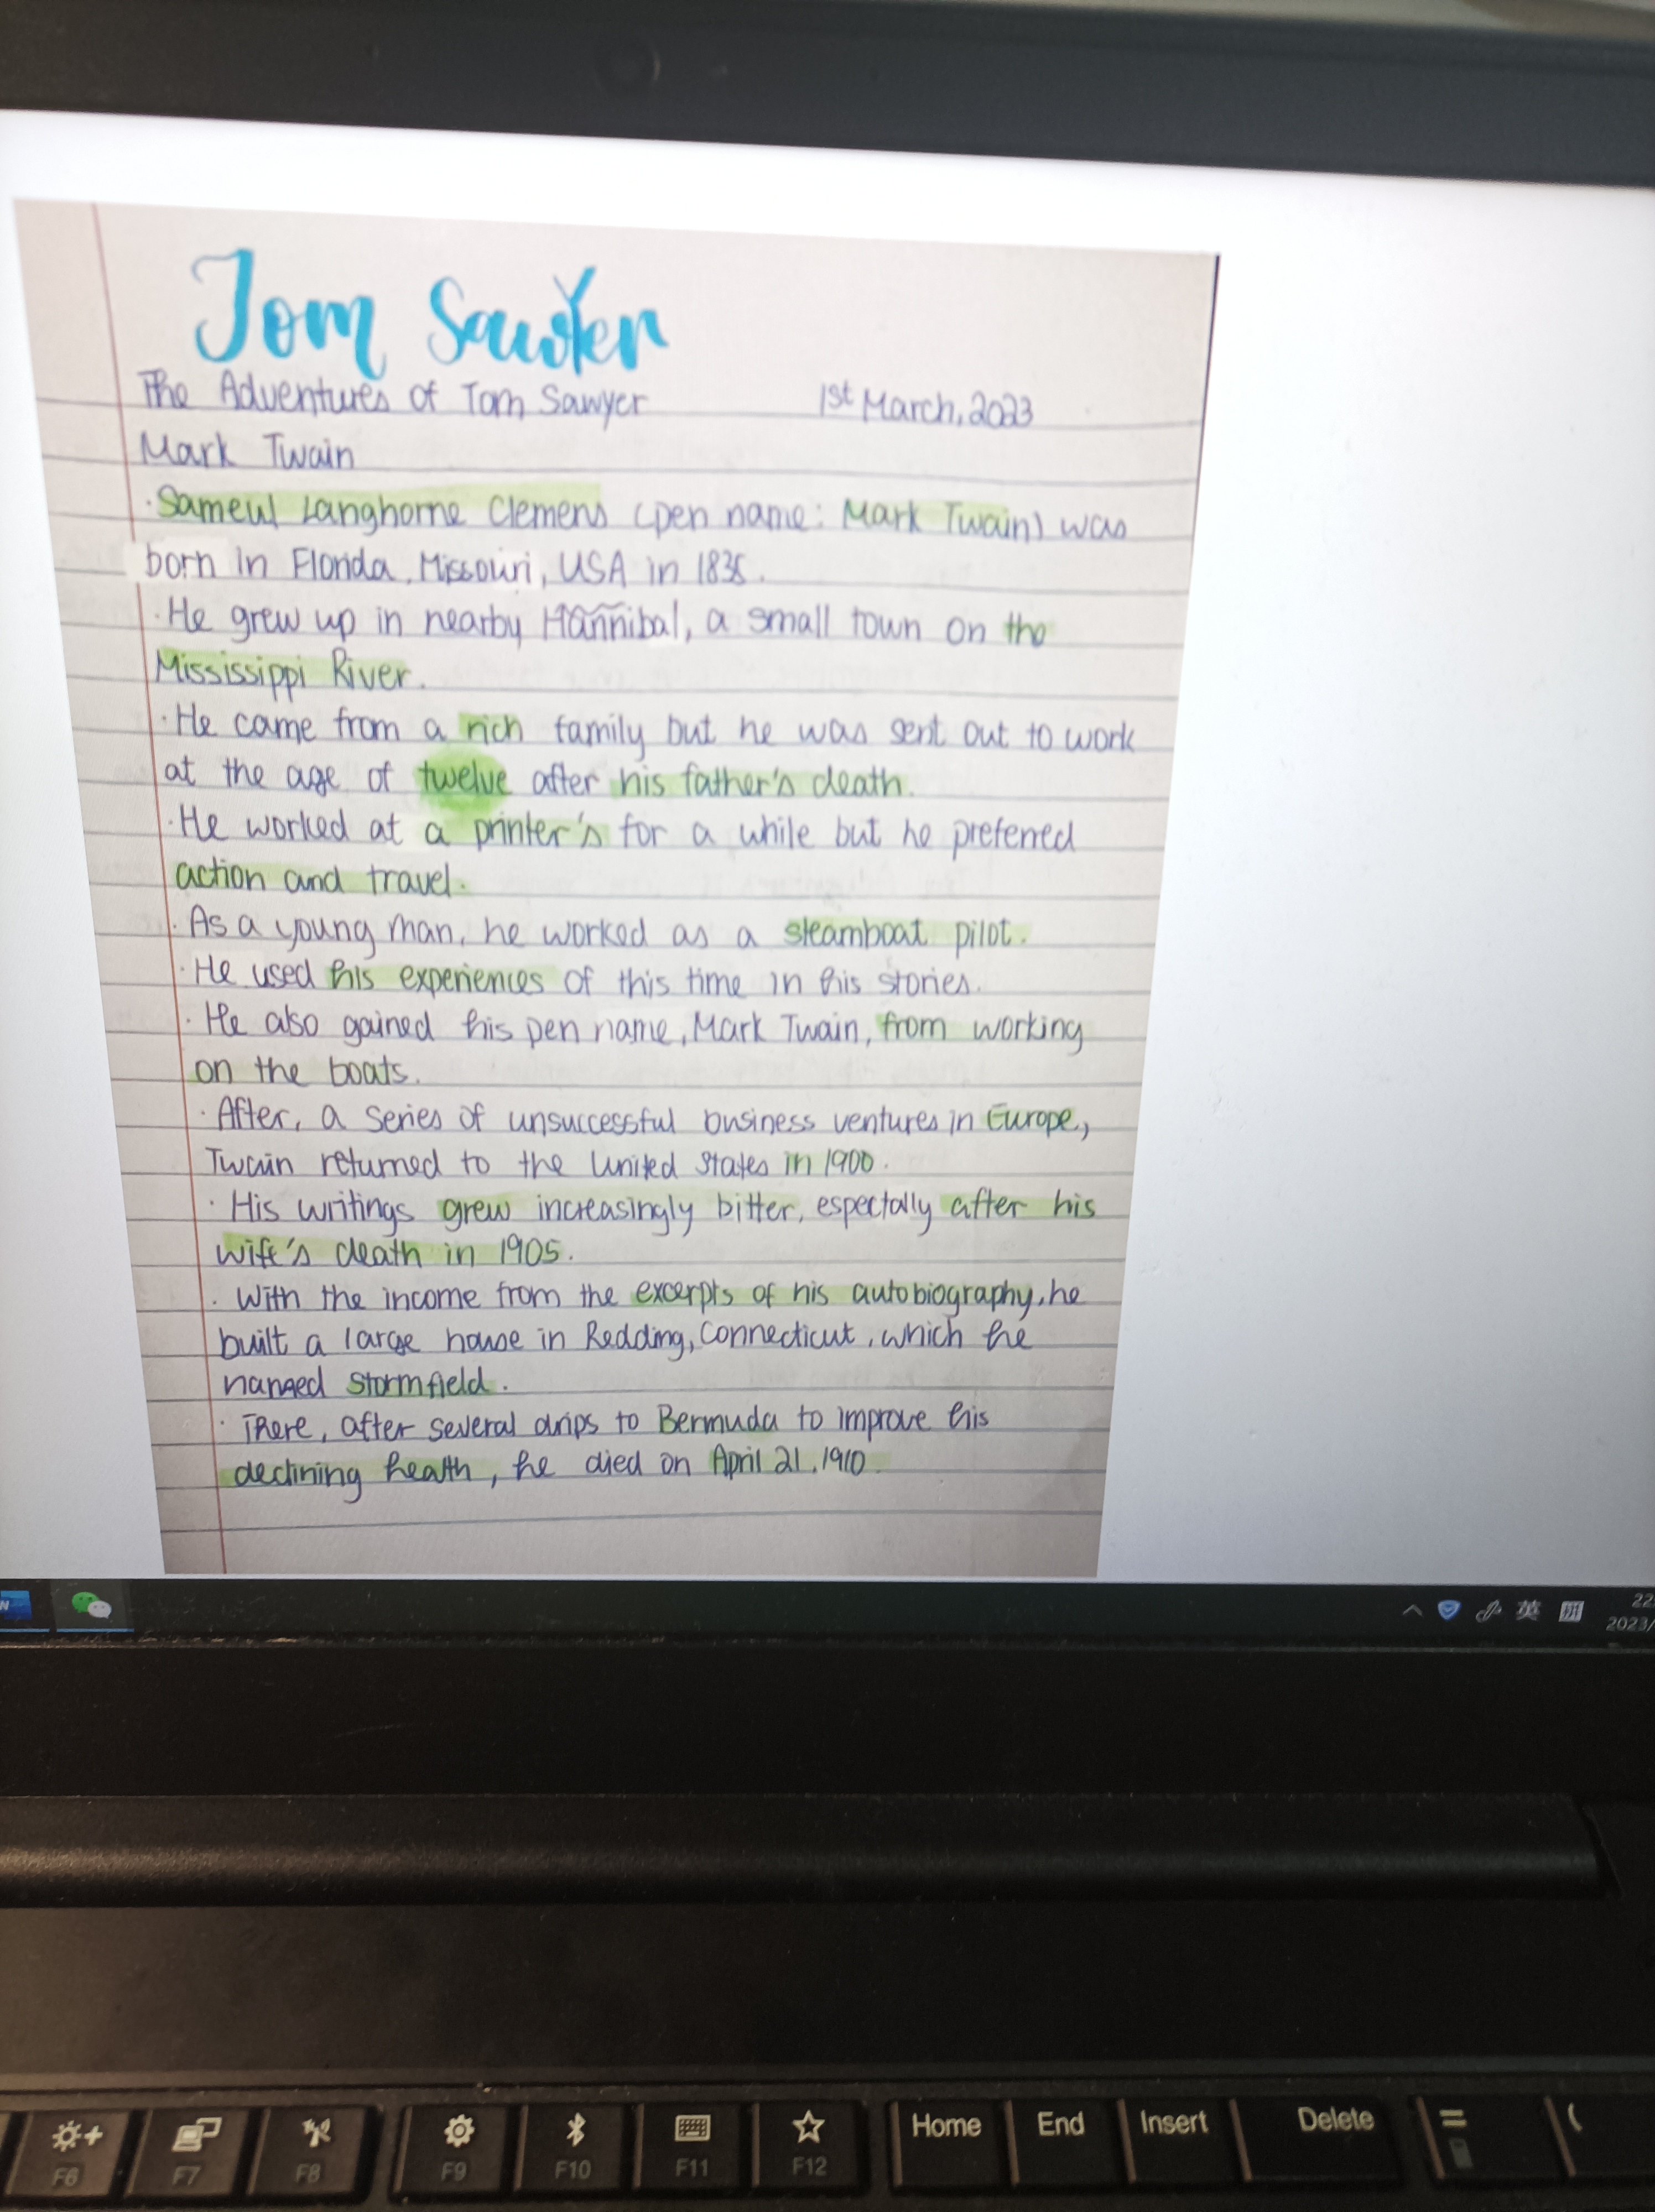 Tom Sawyer
The Adventures of Tom Sawyer 1st March, 2023
Mark Twain
· Sameul Langhorne Clemens (pen name: Mark Twain) was
born in Florida, Missouri, USA in 1835.
· He grew up in nearby Hannibal, a small town on the
Mississippi River.
· He came from a rich family but he was sent out to work
at the age of twelve after his father's death.
· He worked at a printer's for a while but he preferred
action and travel.
· As a young man, he worked as a steamboat pilot.
· He used his experiences of this time in his stories.
· He also gained his pen name, Mark Twain, from working
on the boats.
· After, a series of unsuccessful business ventures in Europe,
Twain returned to the United States in 1900.
· His writings grew increasingly bitter, especially after his
wife's death in 1905.
· With the income from the excerpts of his autobiography, he
built a large house in Redding, Connecticut, which he
named Stormfield.
· There, after several to Bermuda to improve his
declining health, he died on April 21, 1910
英 拼
22
2023/
F6 F7 F8 F9 F10 F11 F12 Home End Insert Delete =